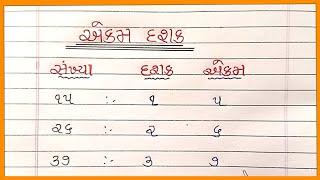 એકમ દશક
સંખ્યા દશક એકમ
૧૫ :- ૧ ૫
૨૬ :- ૨ ૬
૩૭ :- ૩ ૭